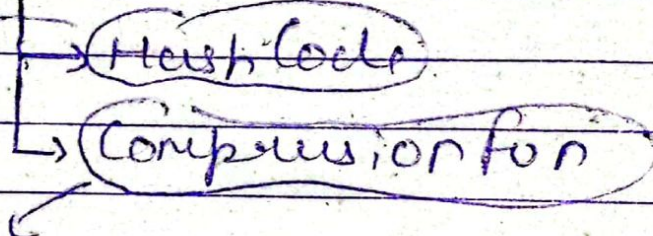 → Hash Code
↳ Compression fun